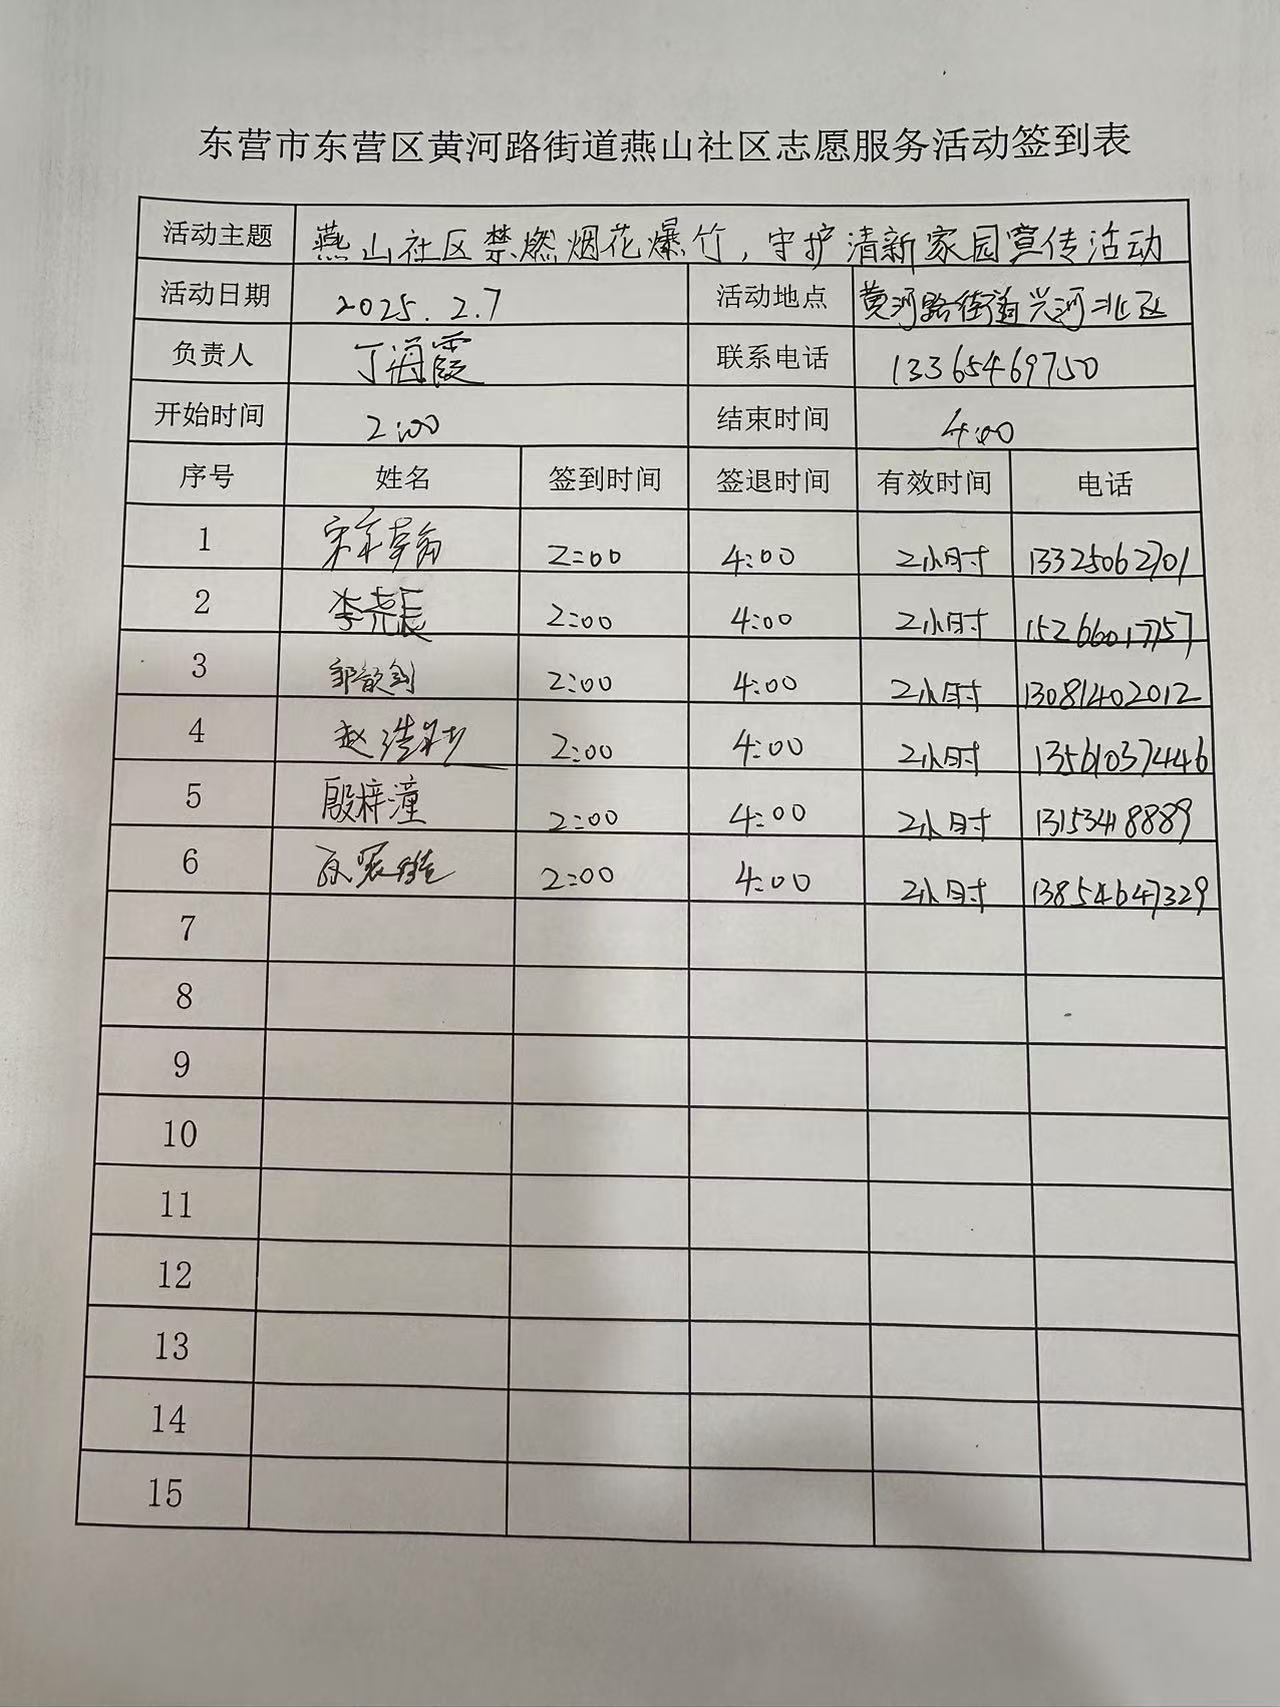 东营市东营区黄河路街道燕山社区志愿服务活动签到表
活动主题 燕山社区禁燃烟花爆竹，守护清新家园宣传活动
活动日期 2025.2.7 活动地点 黄河路街道兴河北区
负责人 丁海霞 联系电话 13365469750
开始时间 2:00 结束时间 4:00
序号 姓名 签到时间 签退时间 有效时间 电话
1 2:00 4:00 2小时 13325062701
2 李尧辰 2:00 4:00 2小时 15266017757
3 2:00 4:00 2小时 13081402012
4 赵浩 2:00 4:00 2小时 13561037446
5 殷梓潼 2:00 4:00 2小时 13153418889
6 2:00 4:00 2小时 13854647329
7
8
9
10
11
12
13
14
15